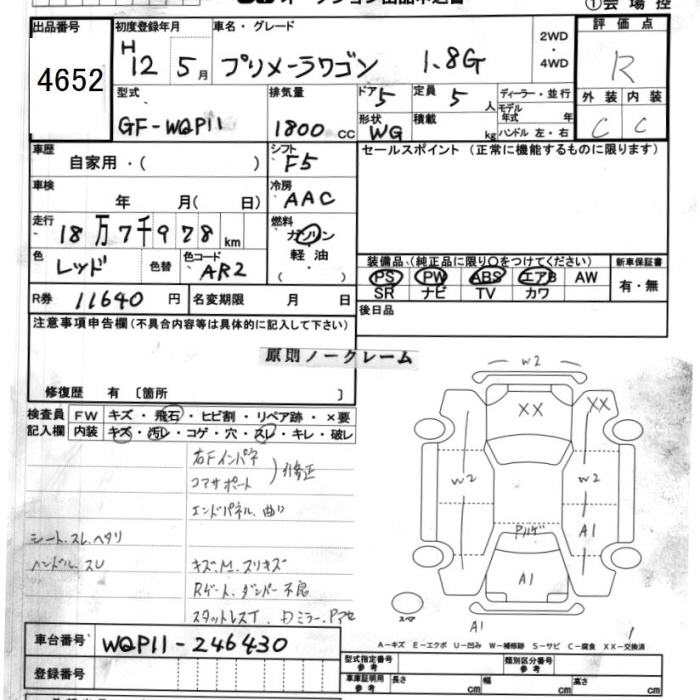 ①会場控
出品番号 初度登録年月 車名・グレード 2WD・4WD 評価点
4652 H12 5月 プリメーラワゴン 1.8G R
型式 排気量 ドア 5 定員 5人 ディーラー・並行 外装 内装
GF-WQP11 1800cc 形状 WG 積載 kg モデル年式 年 ハンドル 左・右 C C
車歴 自家用・( ) シフト F5 セールスポイント(正常に機能するものに限ります)
車検 年 月( 日) 冷房 AAC
走行 18万7千978km 燃料 ガソリン・軽油・( )
色 レッド 色替 色コード AR2
装備品(純正品に限り○をつけてください) 新車保証書
PS PW ABS エアB AW 有・無
SR ナビ TV カワ
R券 11640円 名変期限 月 日 後日品
注意事項申告欄(不具合内容等は具体的に記入して下さい)
原則ノークレーム
修復歴 有 〔箇所 〕
検査員 FW キズ・飛石・ヒビ割・リペア跡・×要
記入欄 内装 キズ・汚レ・コゲ・穴・スレ・キレ・破レ
右Fインパネ
コアサポート 修正
エンドパネル、曲り
シート、スレ、ヘタリ
ハンドル、スレ
キズ、M、スリキズ
Rゲート、ダンパー不良
スタットレスT、
W2
XX XX
W2 W2
A1
A1
スペア
A1
車台番号 WQP11-246430
登録番号
A-キズ E-エクボ U-凹み W-補修跡 S-サビ C-腐食 XX-交換済
型式指定番号 参考 類別区分番号 参考
車庫証明用 参考 長さ cm 幅 cm 高さ cm